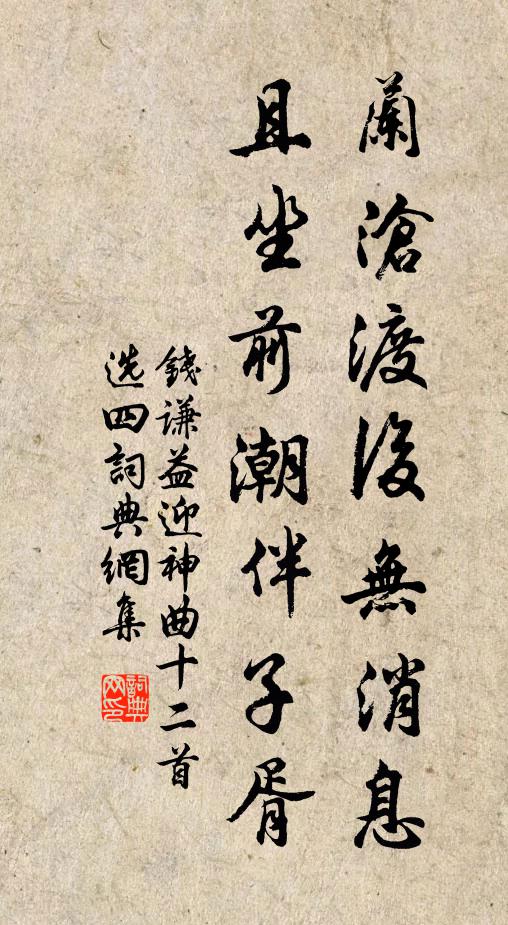 蘭滄渡後無消息
且坐前潮伴子胥
錢謙益迎神曲十二首
选四詞典網集
詞典
网印